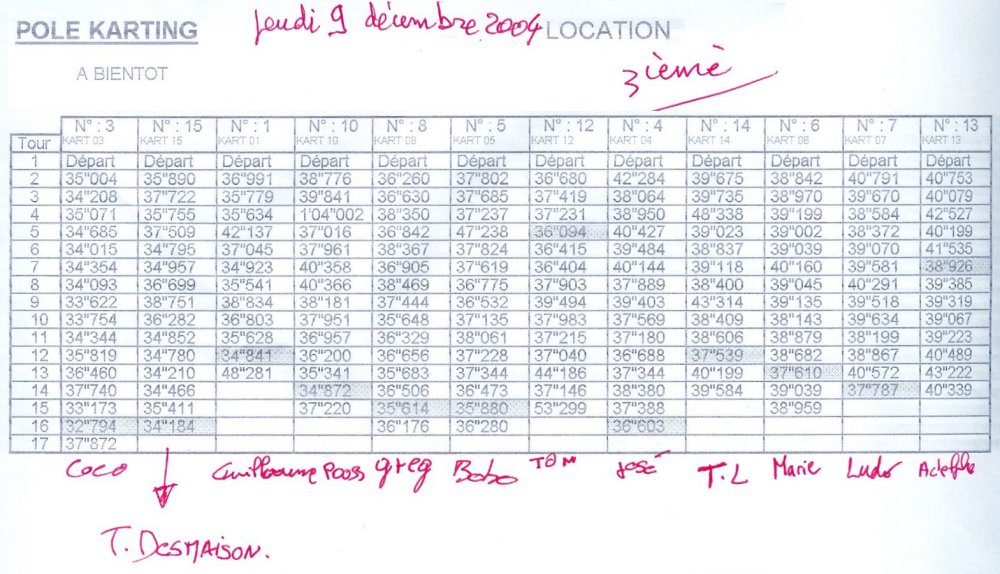 POLE KARTING Jeudi 9 décembre 2004 LOCATION
A BIENTOT 3ième
N° : 3 N° : 15 N° : 1 N° : 10 N° : 8 N° : 5 N° : 12 N° : 4 N° : 14 N° : 6 N° : 7 N° : 13
Tour KART 03 KART 15 KART 01 KART 10 KART 08 KART 05 KART 12 KART 04 KART 14 KART 06 KART 07 KART 13
1 Départ Départ Départ Départ Départ Départ Départ Départ Départ Départ Départ Départ
2 35"004 35"890 36"991 38"776 36"260 37"802 36"680 42"284 39"675 38"842 40"791 40"753
3 34"208 37"722 35"779 39"841 36"630 37"685 37"419 38"064 39"735 38"970 39"670 40"079
4 35"071 35"755 35"634 1'04"002 38"350 37"237 37"231 38"950 48"338 39"199 38"584 42"527
5 34"685 37"509 42"137 37"016 36"842 47"238 36"094 40"427 39"023 39"002 38"372 40"199
6 34"015 34"795 37"045 37"961 38"367 37"824 36"415 39"484 38"837 39"039 39"070 41"535
7 34"354 34"957 34"923 40"358 36"905 37"619 36"404 40"144 39"118 40"160 39"581 38"926
8 34"093 36"699 35"541 40"366 38"469 36"775 37"903 37"889 38"400 39"045 40"291 39"385
9 33"622 38"751 38"834 38"181 37"444 36"532 39"494 39"403 43"314 39"135 39"518 39"319
10 33"754 36"282 36"803 37"951 35"648 37"135 37"983 37"569 38"409 38"143 39"634 39"067
11 34"344 34"852 35"628 36"957 36"329 38"061 37"215 37"180 38"606 38"879 38"199 39"223
12 35"819 34"780 34"841 36"200 36"656 37"228 37"040 36"688 37"539 38"682 38"867 40"489
13 36"460 34"210 48"281 35"341 35"683 37"344 44"186 37"344 40"199 37"610 40"572 43"222
14 37"740 34"466 34"872 36"506 36"473 37"146 38"380 39"584 39"039 37"787 40"339
15 33"173 35"411 37"220 35"614 35"880 53"299 37"388 38"959
16 32"794 34"184 36"176 36"280 36"603
17 37"872
Coco Guillaume greg Bobo TOM José T.L Marie Ludo
T. DESMAISON.